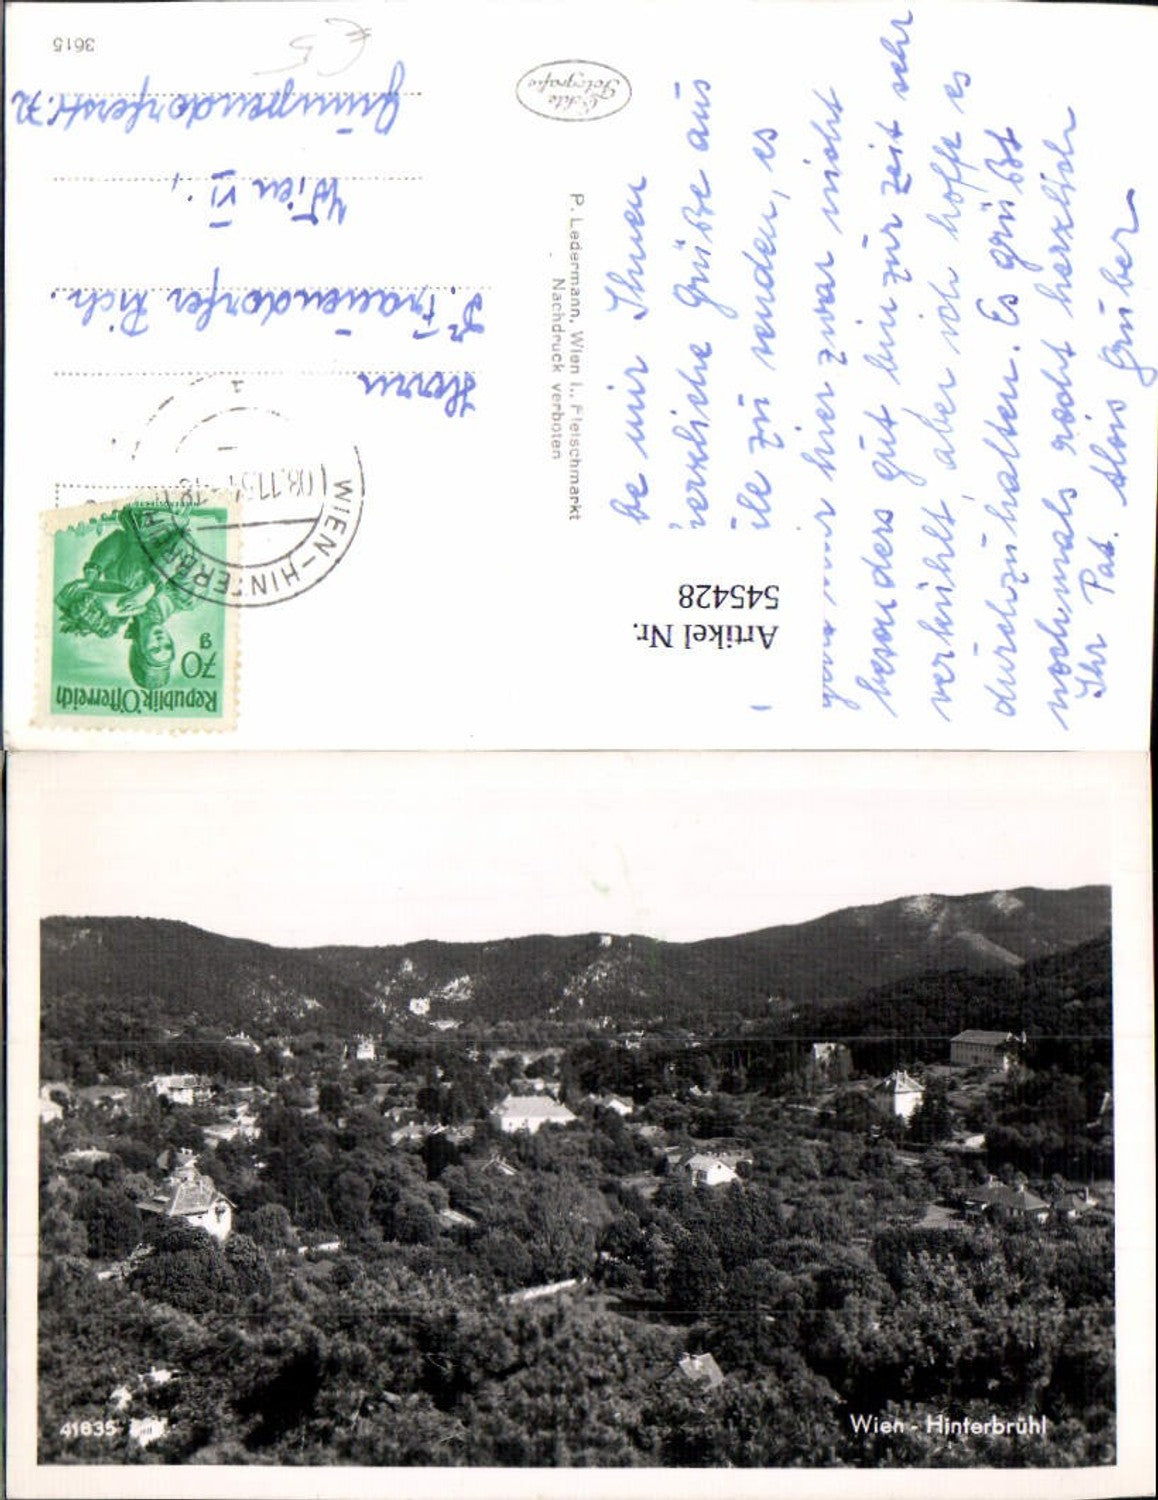 be mir Ihnen
herzliche Grüße aus
zu senden, es
hier zwar nicht
besonders gut bin zur zeit sehr
verkühlt, aber ich hoffe es
durchzuhalten. Es grüßt
nochmals recht herzlich
Ihr Pat. Alois Gruber
Echte
Fotografie
P. Ledermann, Wien I., Fleischmarkt
Nachdruck verboten
Artikel Nr.
545428
Republik Österreich
70
g
WIEN-HINTERBRÜHL
08.11.51
Herrn
Dr. Frauendorfer Rich.
Wien VI.,
Gumpendorferstr. 72
3615
€ 5
41635
Wien - Hinterbrühl